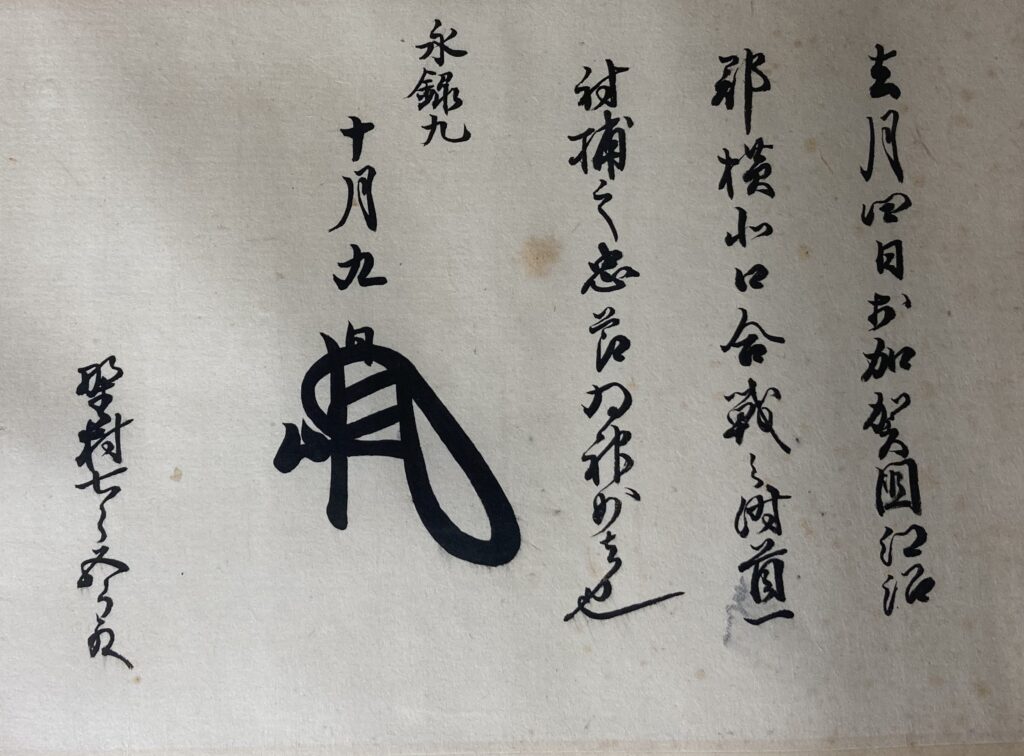 去月四日於加賀國江沼
郡横北口合戦之時首一
討捕之忠節尤神妙者也
永録九
十月九日
野村七郎五郎殿